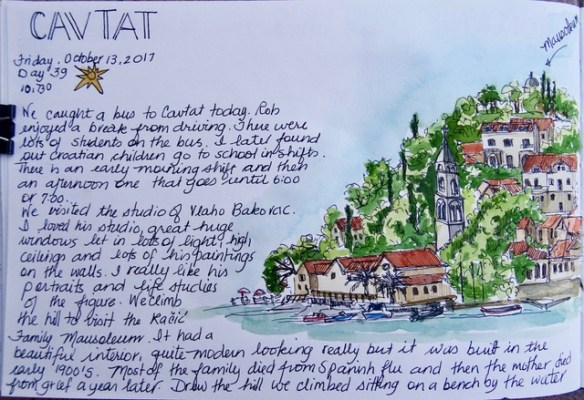 CAVTAT
Friday, October 13, 2017
Day 39
10,790
Mausoleum
We caught a bus to Cavtat today. Rob
enjoyed a break from driving. There were
lots of students on the bus. I later found
out Croatian children go to school in shifts.
There is an early morning shift and then
an afternoon one that goes until 6:00
or 7:00.
We visited the studio of Vlaho Bakovac.
I loved his studio, great huge
windows let in lots of light, high
ceilings and lots of his paintings
on the walls. I really like his
portraits and life studies
of the figure. We climb
the hill to visit the Račić
Family Mausoleum. It had a
beautiful interior, quite modern looking really but it was built in the
early 1900's. Most of the family died from Spanish flu and then the mother died
from grief a year later. Drew the hill we climbed sitting on a bench by the water